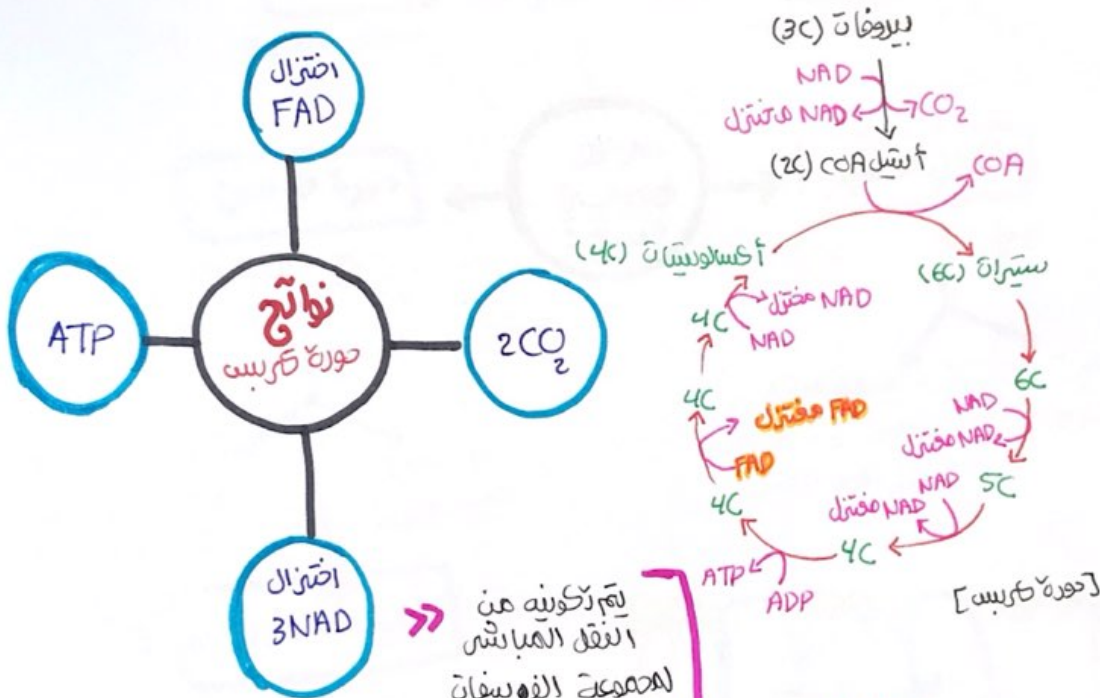 اختزال
FAD
ATP
نواتج
دورة كربس
2CO2
اختزال
3NAD
يتم تكوينه من
النقل المباشر
لمجموعة الفوسفات
بيروفات (3C)
NAD
NAD مختزل
CO2
أستيل COA (2C)
COA
أكسالوسيتات (4C)
ستيرات (6C)
NAD مختزل
NAD
4C
6C
4C
FAD مختزل
FAD
NAD
NAD مختزل
5C
NAD
NAD مختزل
4C
4C
ATP
ADP
[دورة كربس]